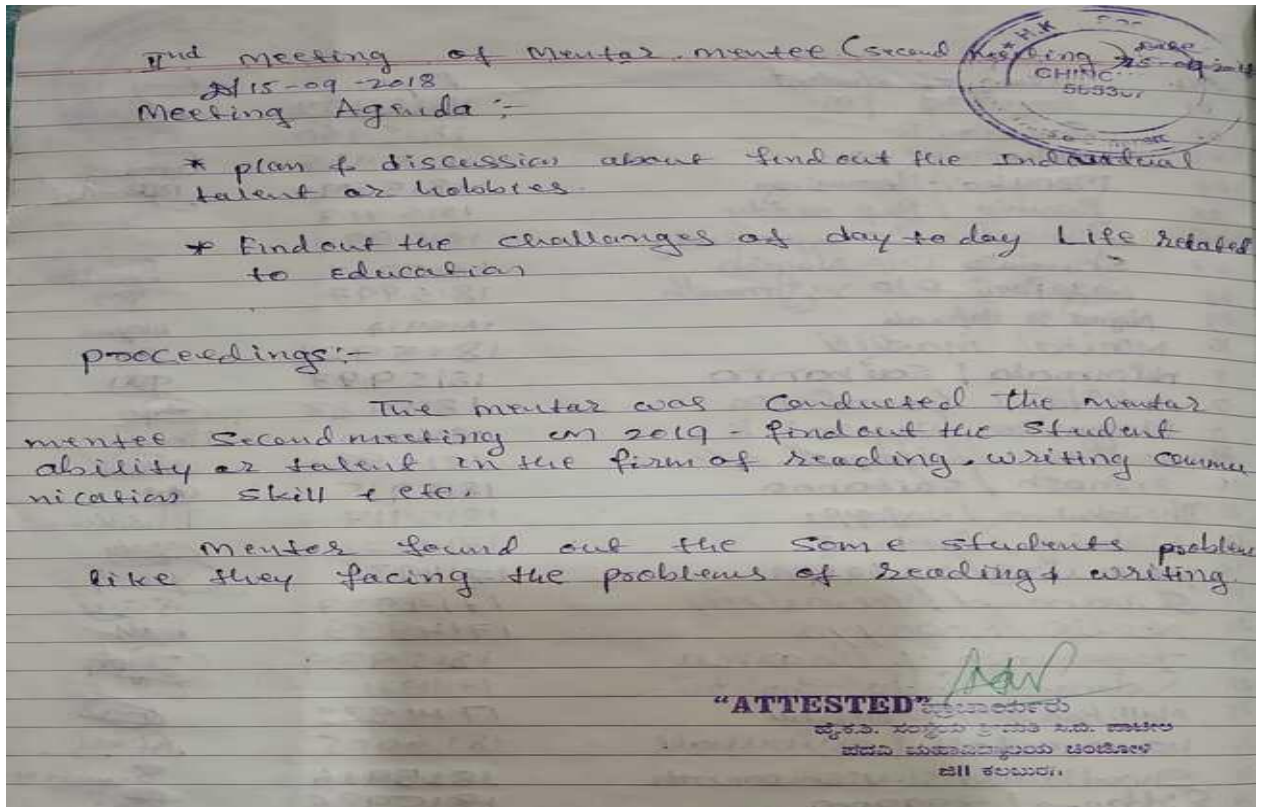 IInd meeting of Mentar. mentee (second Meeting Date
15-09-2018
15-09-2018
Meeting Agenda :-
* plan & discussion about findout the Individual
talent or hobbies
* Findout the challanges of day to day Life related
to Education
proceedings:-
The mentar was Conducted the mentar
mentee Second meeting on 2019 - findout the Student
ability or talent in the form of reading, writing commu
nication skill & etc.
Mentor found out the some students problem
like they facing the problems of reading & writing
"ATTESTED" ಪ್ರಾಚಾರ್ಯರು
ಹೈ.ಕ.ಶಿ. ಸಂಸ್ಥೆಯ ಶ್ರೀಮತಿ ಸಿ.ಬಿ. ಪಾಟೀಲ
ಪದವಿ ಮಹಾವಿದ್ಯಾಲಯ ಚಿಂಚೋಳಿ
ಜಿ|| ಕಲಬುರಗಿ